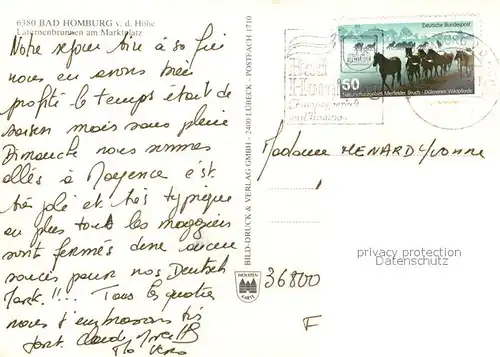 6380 BAD HOMBURG v. d. Höhe
Laternenbrunnen am Marktplatz
Notre sejour tire à sa fin
nous en avons bien
profité le temps était de
saison mais sans pluie
Dimanche nous sommes
allés à Mayence c'est
très joli et très typique
en plus tout les magasins
sont fermés donc aucun
soucis pour nos Deutsch
Mark !!! .. Tous les quatre
nous t'embrassons très
fort. Claude
BILD-DRUCK & VERLAG GMBH - 2400 LÜBECK - POSTFACH 1710
HOLSTEN
KARTE
Deutsche Bundespost
50
Naturschutzgebiet Merfelder Bruch - Dülmener Wildpferde
Bad
Madame MENARD Yvonne
privacy protection
Datenschutz
36800
F